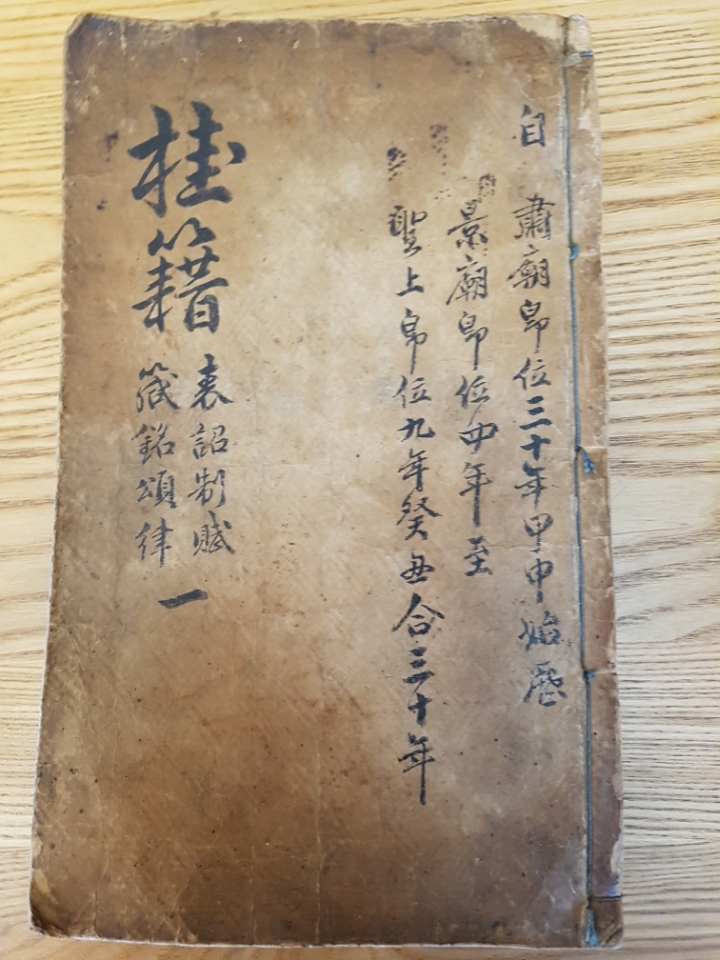 自 肅廟卽位三十年甲申始歷
景廟卽位四年至
聖上卽位九年癸丑合三十年
桂籍
表詔制賦
箴銘頌律
一